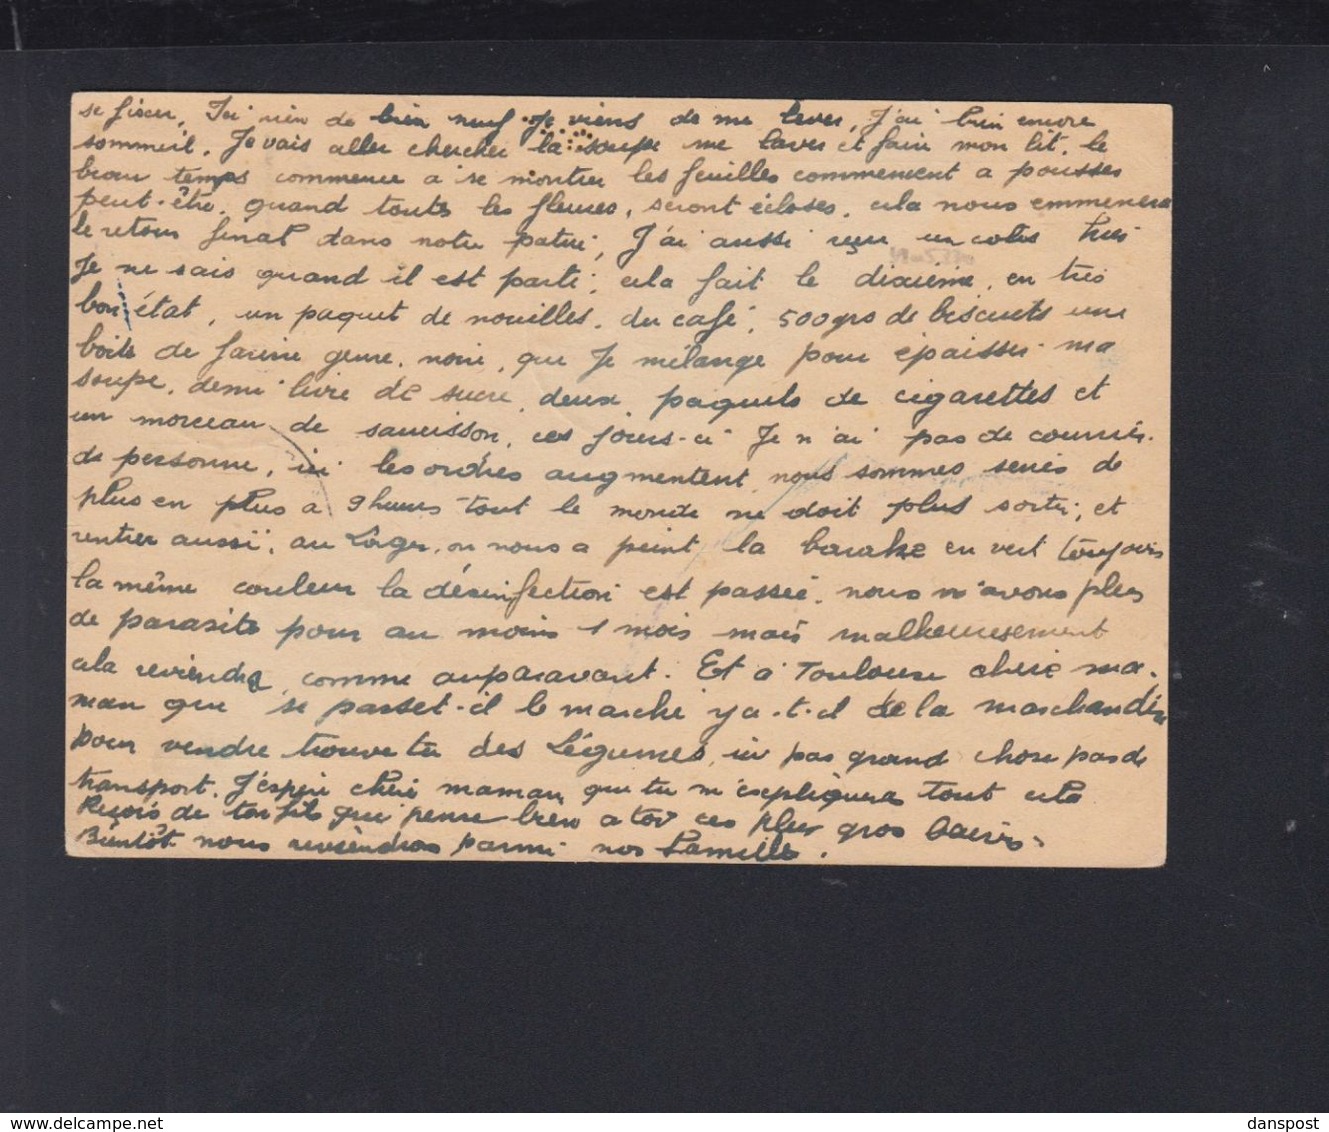 se fixer, Ici rien de bien neuf. Je viens de me lever, J'ai bien encore
sommeil. Je vais aller chercher la soupe me laver et faire mon lit. le
beau temps commence a se montrer les feuilles commencent a pousser
peut-être, quand toutes les fleures, seront écloses, cela nous emmenera
le retour final dans notre patrie, J'ai aussi reçu un colis hier
Je ne sais quand il est parti, cela fait le dixieme, en très
bon état, un paquet de nouilles, du café, 500grs de biscuits une
boite de farine genre, noire, que Je mélange pour épaissir ma
soupe, demi livre de sucre, deux paquets de cigarettes et
un morceau de saucisson, ces jours-ci Je n'ai pas de courrier
de personne, ici les ordres augmentent, nous sommes serrés de
plus en plus a 9 heures tout le monde ne doit plus sortir, et
rentier aussi, au Lager, on nous a peint la barake en vert toujours
la même couleur la désinfection est passée, nous n'avons plus
de parasite pour au moins 1 mois mais malheureusement
cela reviendra comme auparavant. Et à Toulouse cherie ma-
man que se passet-il le marché y a-t-il de la marchandise
pour vendre trouve tu des Légumes, ici pas grand chose pas de
transport. J'espère cherie maman que tu m'expliquera tout cela
Reçois de ton fils qui pense bien a toi ces plus gros baisers
Bientôt nous reviendrons parmi nos familles.
danspost